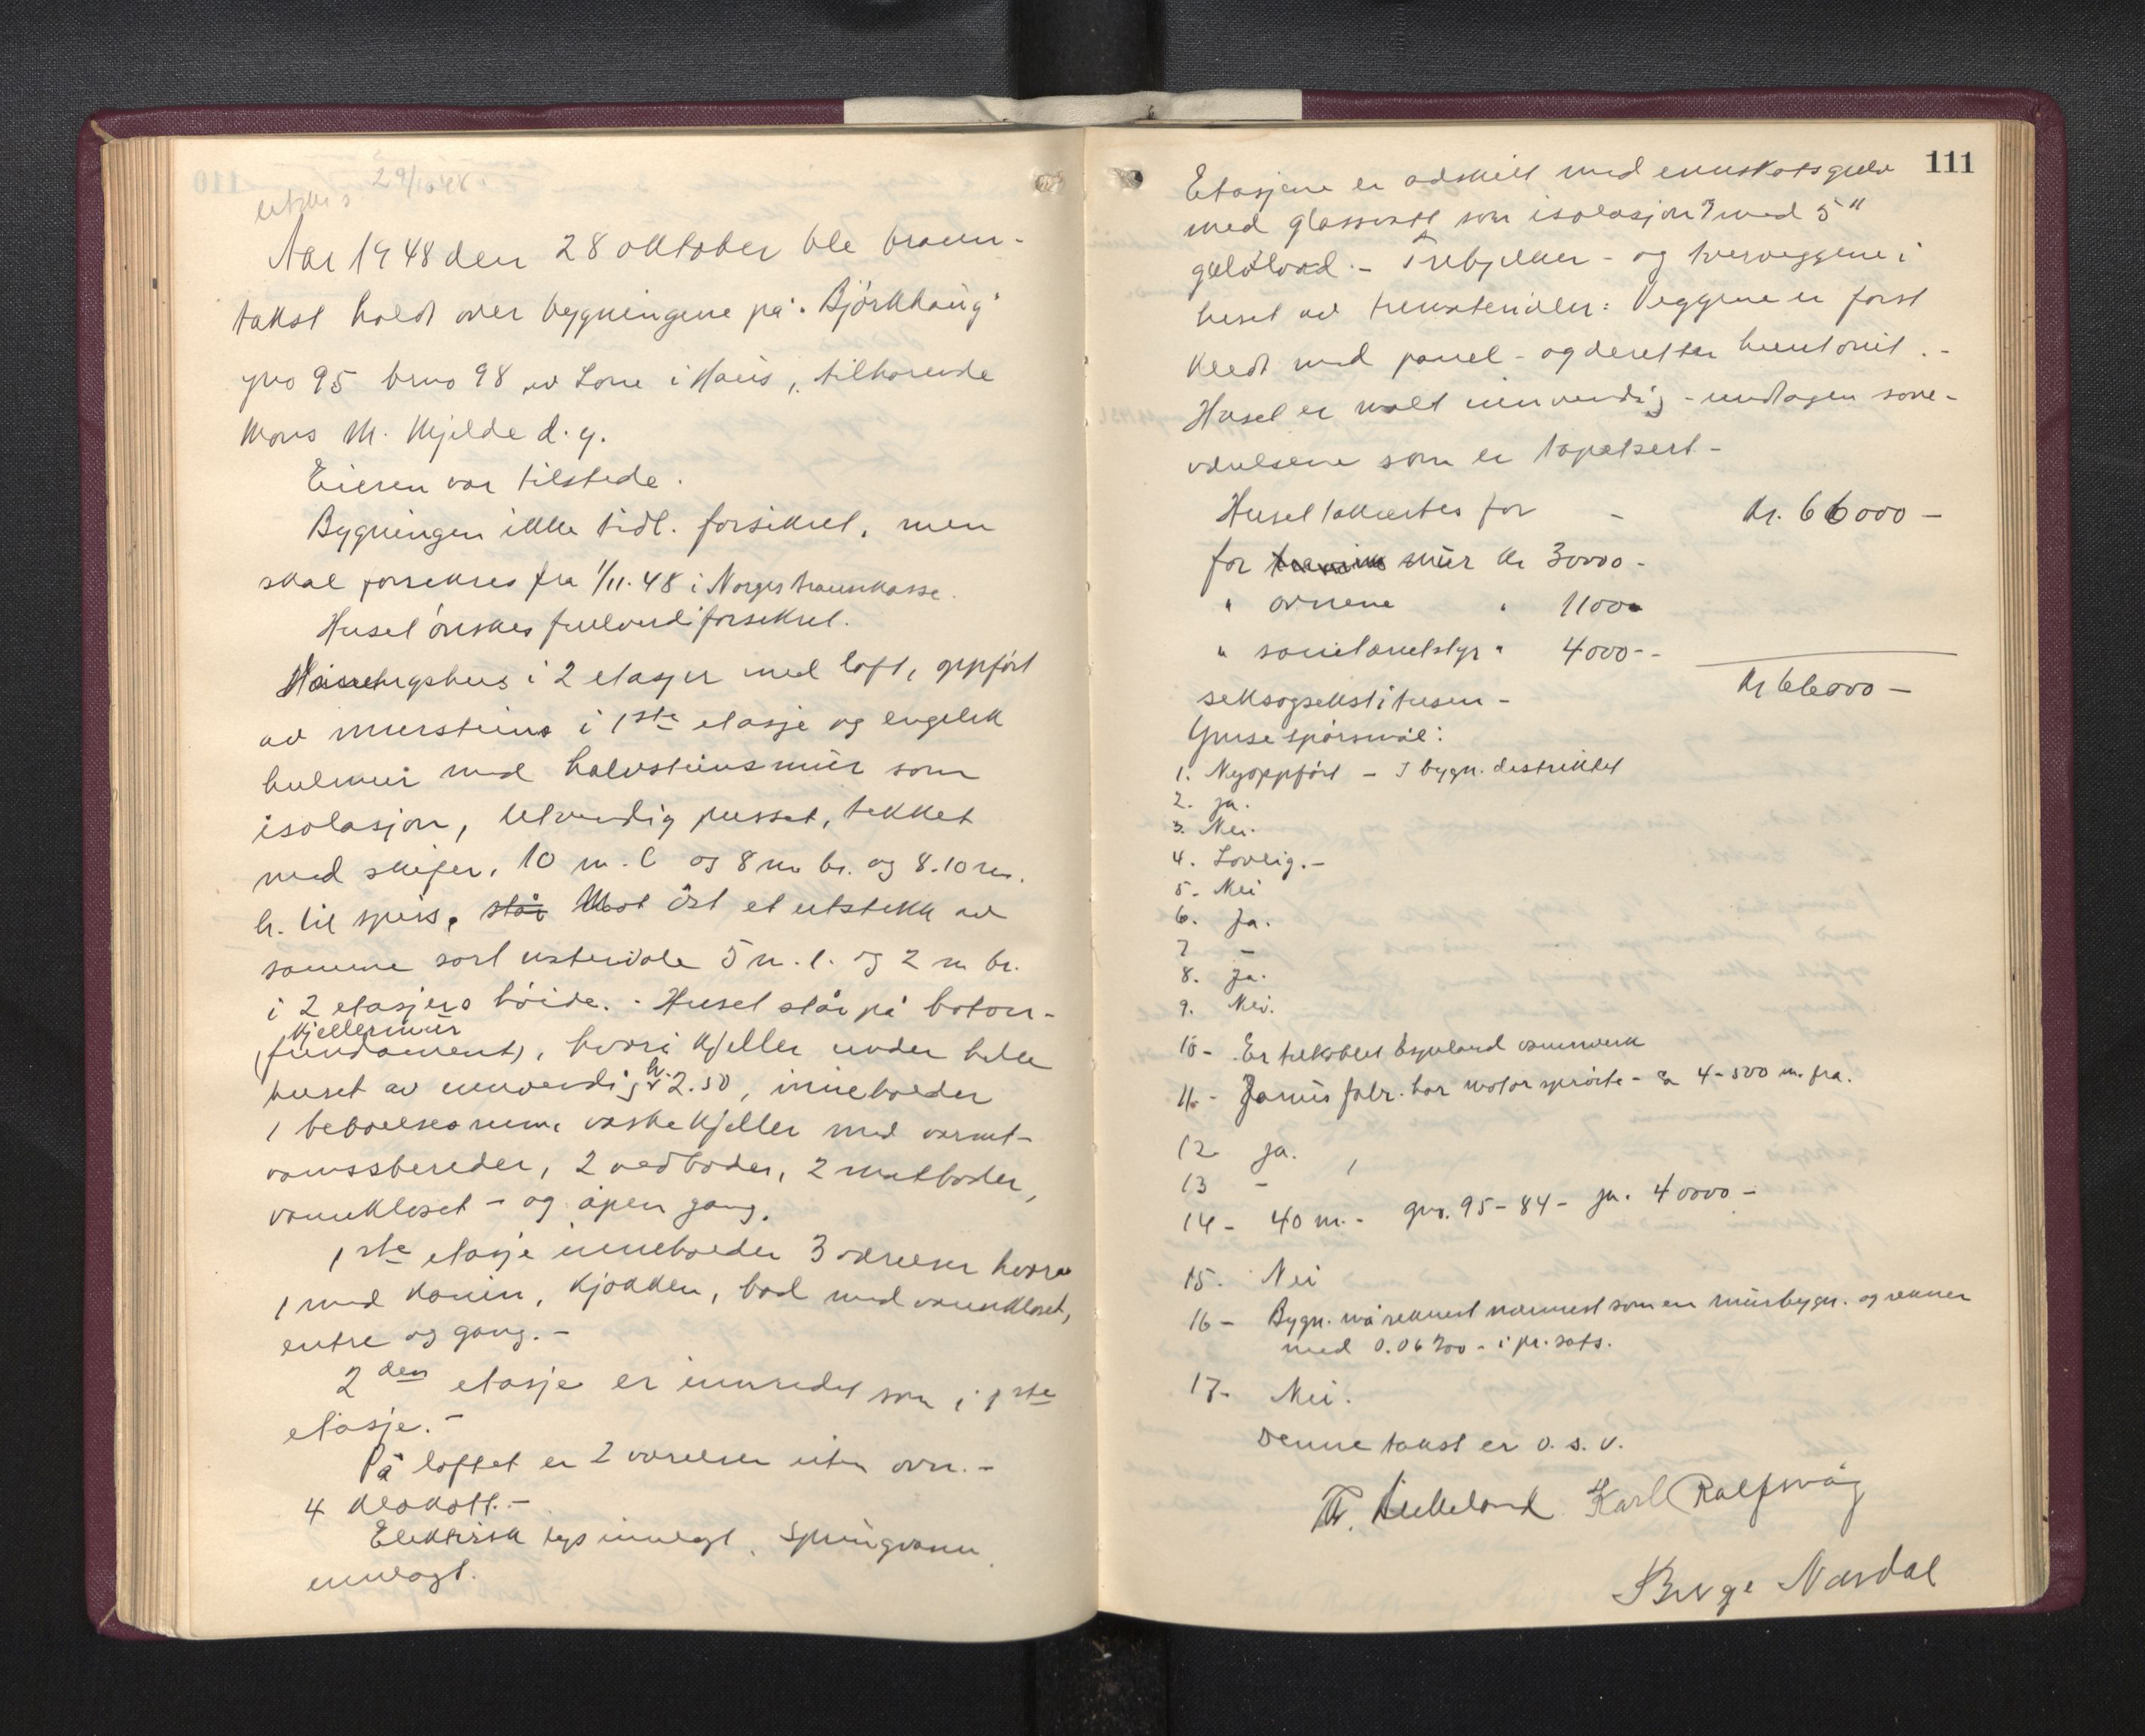 29/10 48.
Aar 1948 den 28 oktober ble brann-
takst holdt over bygningene på "Björkhaug"
gno 95 brno 98 av Lone i Haus, tilhørende
Mons M. Mjelde d. y.
Eieren var tilstede.
Bygningen ikke tidl. forsikret, men
skal forsikres fra 1/11.48 i Norges brannkasse.
Huset ønskes fullverdiforsikret.
i 2 etasjer med loft, oppført
av murstein i 1ste etasje og engelsk
hulmur med halvsteinsmur som
isolasjon, utvendig pusset, tekket
med skifer, 10 m. l og 8 m br. og 8.10 m.
h. til spiss, står Mot öst et utstikk av
samme sort materiale 5 m. l. og 2 m br.
i 2 etasjers höide. - Huset står på beton-
kjellermur
(fundament), hvori kjeller under hele
huset av innvendig h. 2.50, inneholder
1 beboelsesrum, vaskekjeller med varmt-
vannsbereder, 2 vedboder, 2 matboder,
vannkloset - og åpen gang.
1ste etasje inneholder 3 værelser hvorav
1 med kamin, kjøkken, bad med vannkloset,
entre og gang. -
2den etasje er innredet som i 1ste
etasje. -
På loftet er 2 værelser uten ovn. -
4 kleskott. -
Elektrisk lys innlagt. Springvann
innlagt.
111
Etasjene er adskilt med gulv
med glassvatt som isolasjon med 5"
- Trebjelker - og tverveggene i
huset av trematerialer: Veggene er först
kledt med panel - og deretter huntonit. -
Huset er malt innvendig - undtagen sove-
værelsene som er tapetsert -
Huset takseres for - Kr. 66000 -
for mur kr 30000 -
" ovnene " 1100
" sanitærutstyr " 4000 - -
Kr 66000 -
seksogsekstitusen -
Ymse spörsmål:
1. Nyoppfört - I bygn. distriktet
2. ja.
3. Nei.
4. Lovlig. -
5. Nei
6. Ja.
7 -
8. Ja.
9. Nei.
10 - Er tilkoblet vannverk
11 - Janus fabr. har motorspröite - 4-500 m. fra.
12 ja.
13 -
14 - 40 m. - gnr. 95 - 84 - ja. 40000 -
15. Nei
16 - Bygn. må reknest nærmest som en mursbygn. og rekner
med 0.06 i pr. sats.
17. Nei.
Denne takst er o. s. v.
Karl Ralfsvåg
Birge Nardal